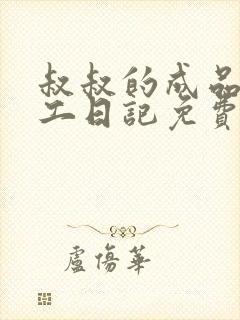 叔叔的成品
工日記免費
盧傷華